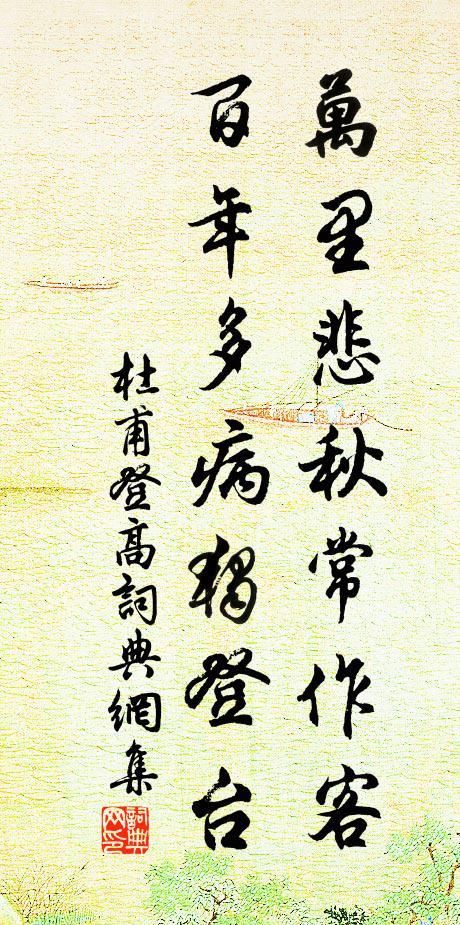 萬里悲秋常作客
百年多病獨登台
杜甫登高詞典網集
詞典
网印